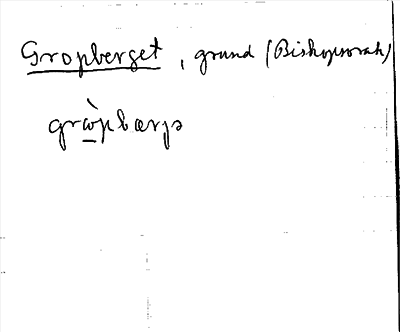 Gropberget, grund (Bishopsorah)
gròpbærjə